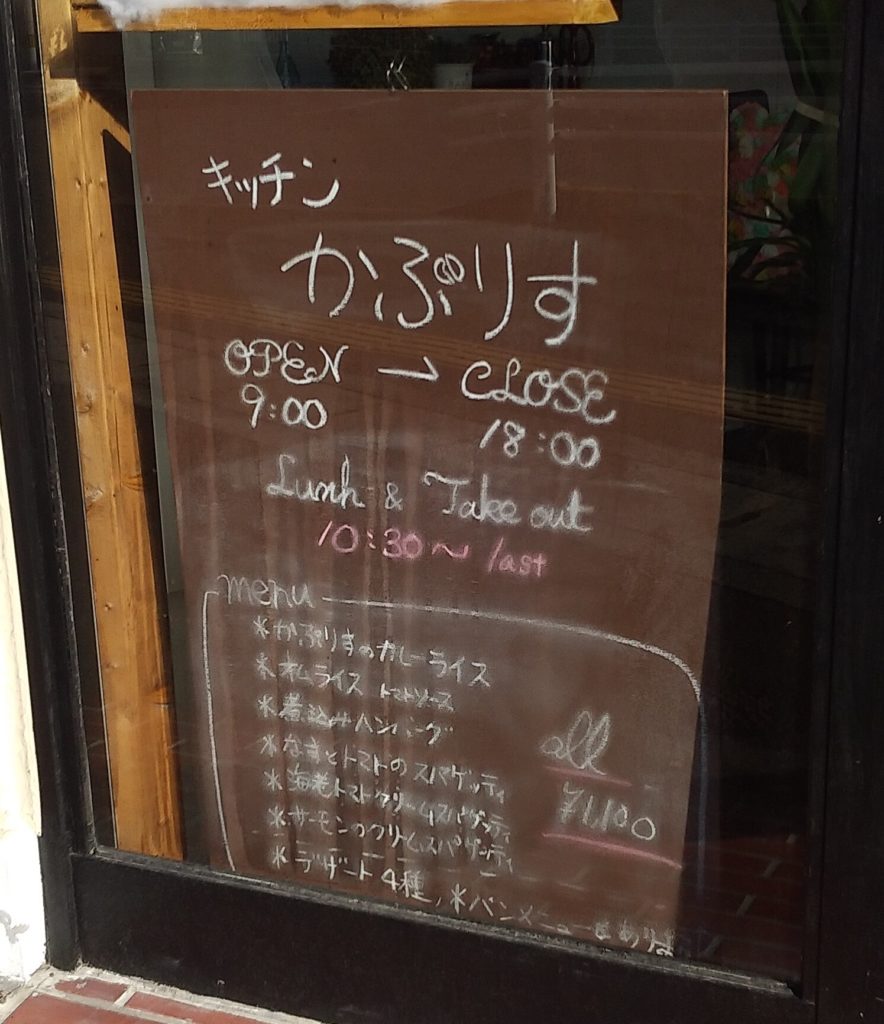 キッチン
かぷりす
OPEN → CLOSE
9:00 18:00
Lunh & Take out
10:30〜last
menu
*かぷりすのカレーライス
*オムライス トマトソース
*煮込みハンバーグ
*なすとトマトのスパゲッティ
*海老トマトクリームスパゲッティ
*サーモンのクリームスパゲッティ
*デザート4種, *パンメニューもありま
all
¥1,100